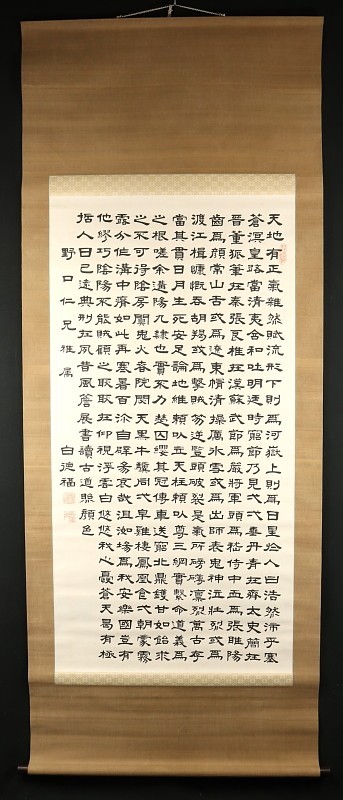 天地有正氣雜然賦流形下則為河嶽上則為日星於人曰浩然沛乎塞
蒼溟皇路當清夷含和吐明廷時窮節乃見弌弌垂丹青在齊太史簡在
晉董狐筆在秦張良椎在漢蘇武節為嚴將軍頭為嵇侍中血為張睢陽
齒為顏常山舌或為遼東帽清操厲冰雪或為出師表鬼神泣壯烈或為
渡江楫慷慨吞胡羯或為擊賊笏逆豎頭破裂是氣所磅礴凜烈萬古存
當其貫日月生死安足論地維賴以立天柱賴以尊三綱實繫命道義為
之根嗟余遘陽九隸也實不力楚囚纓其冠傳車送窮北鼎鑊甘如飴求
之不可得陰房闃鬼火春院閟天黑牛驥同弌皁雞棲鳳凰食弌朝蒙霧
露分作溝中瘠如此再寒暑百沴自辟易哀哉沮洳場為我安樂國豈有
他繆巧陰陽不能賊顧此耿耿在仰視浮雲白悠悠我心憂蒼天曷有極
哲人日已遠典刑在夙昔風簷展書讀古道照顏色
野口仁兄雅屬
白德福